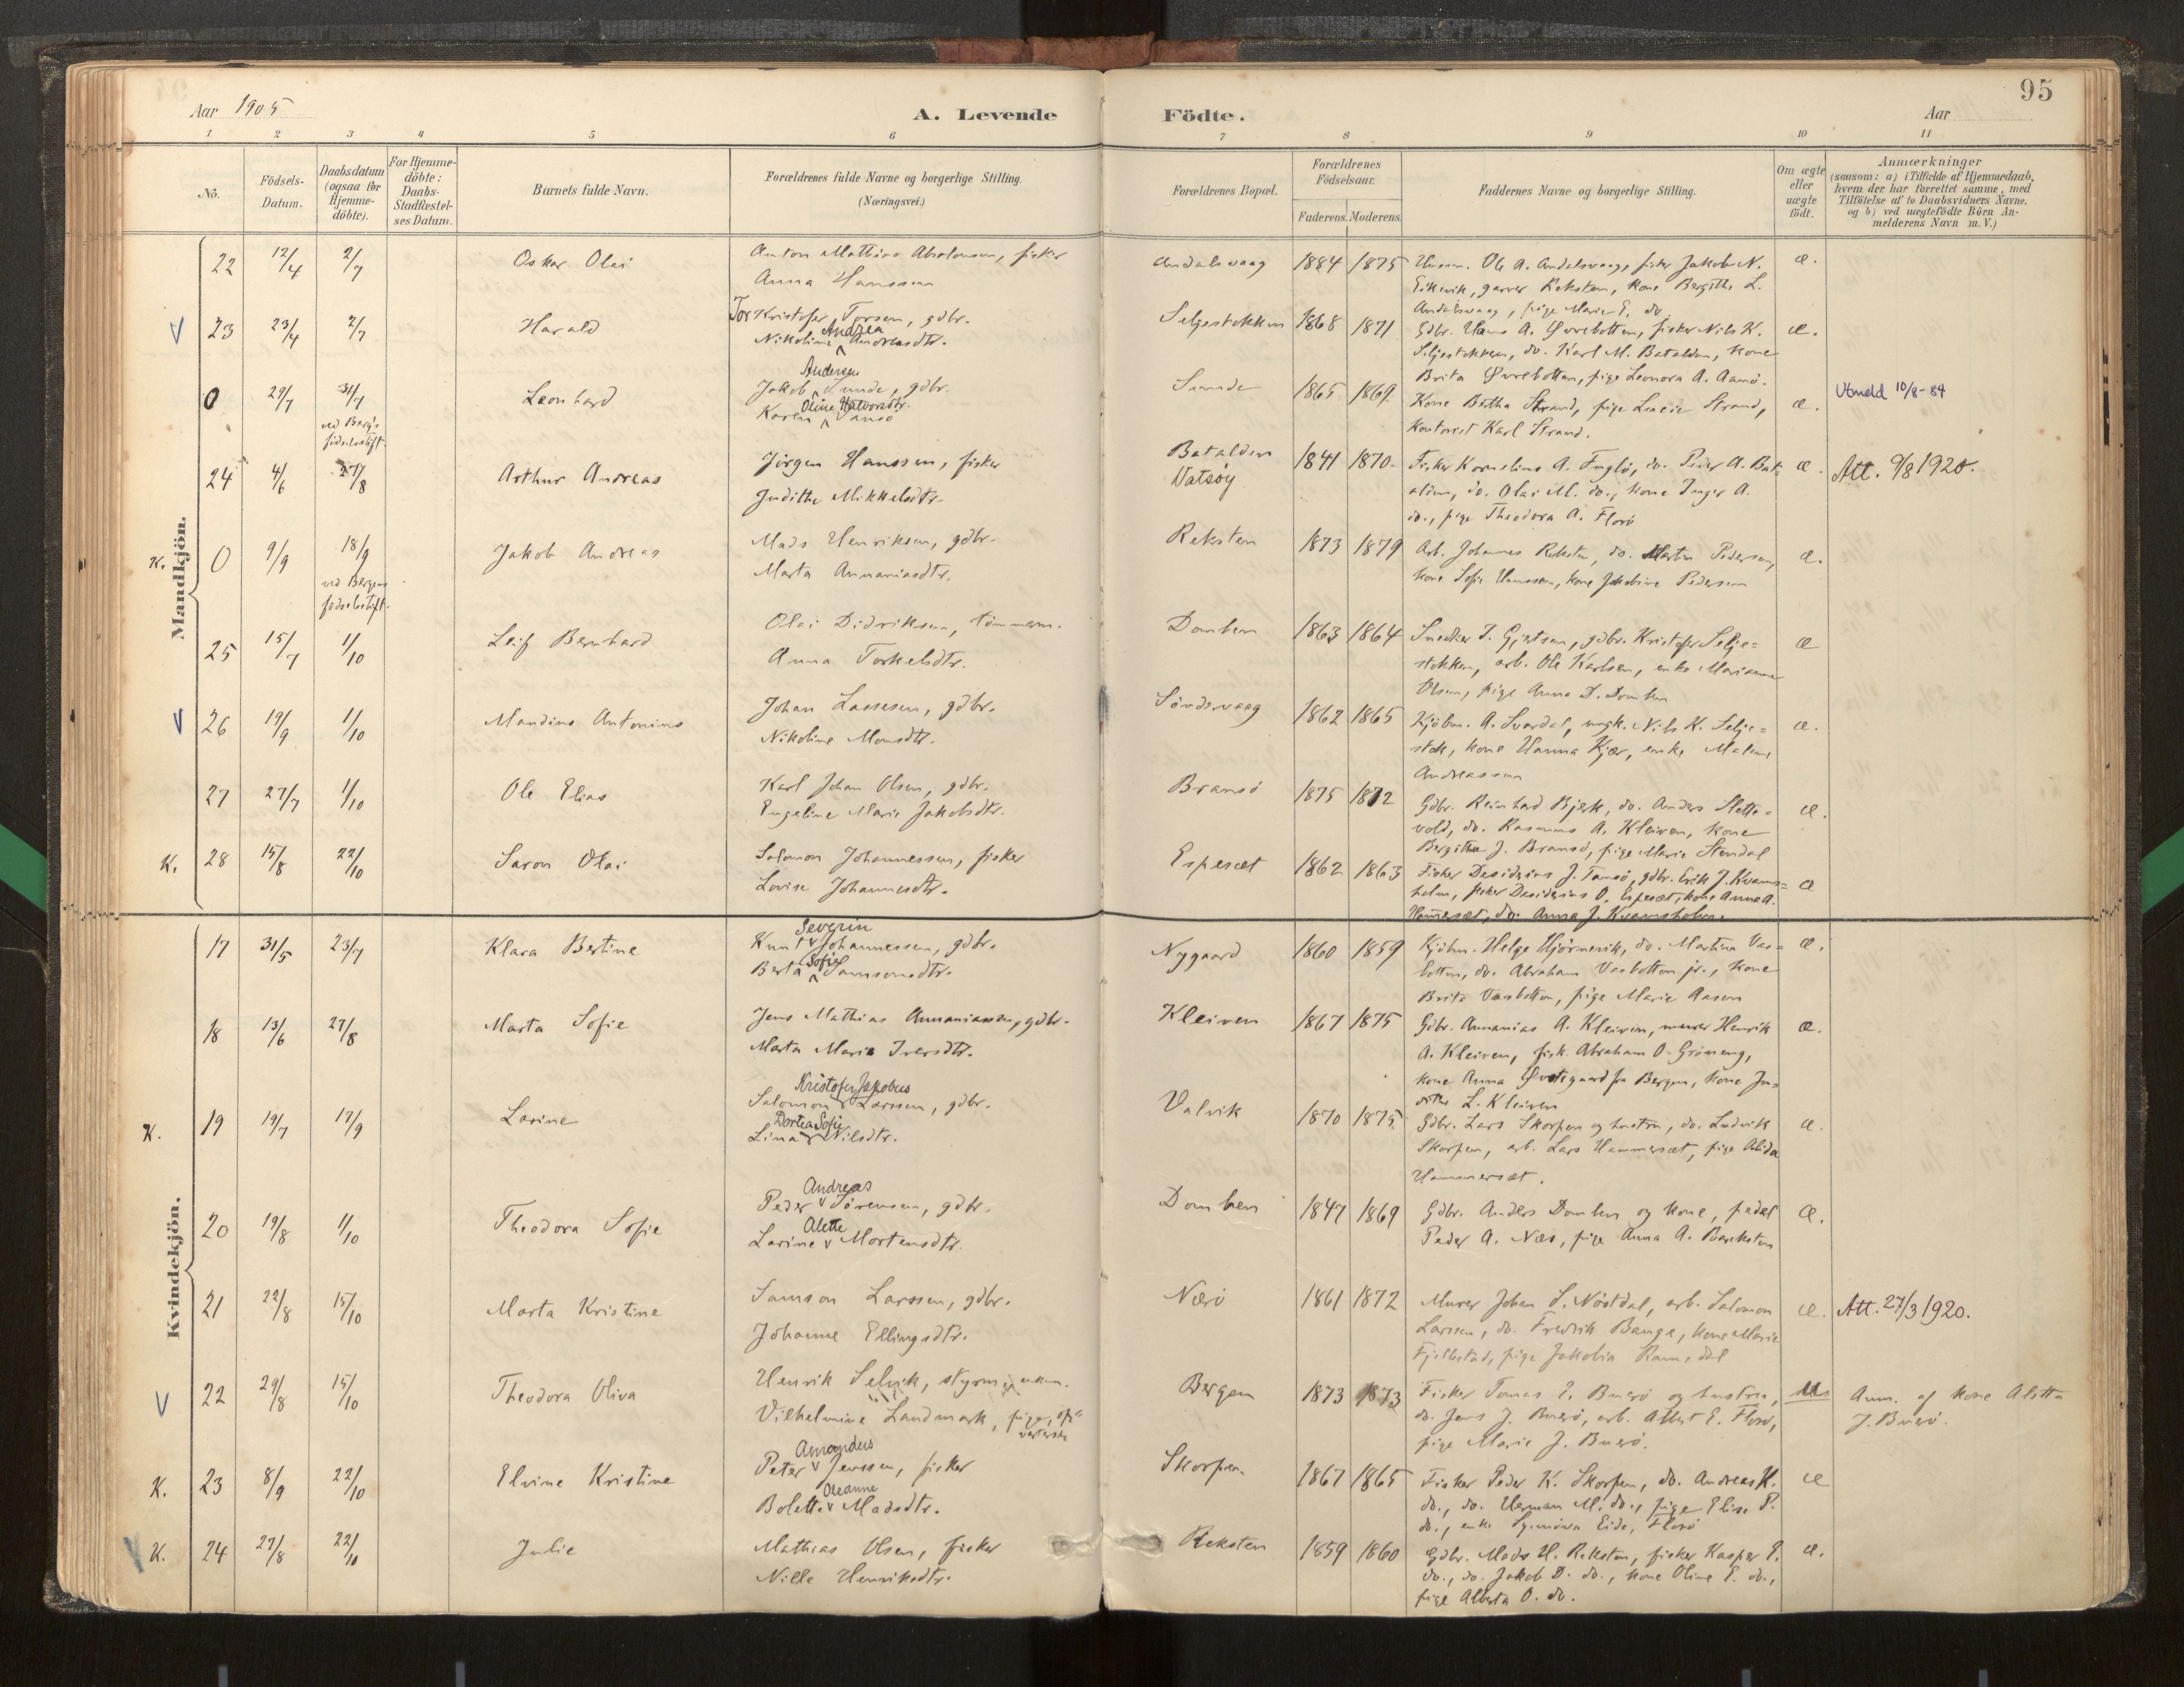 95
Aar 1905
A. Levende
Födte.
Aar
1 2 3 4 5 6 7 8 9 10 11
No.
Födsels-
Datum.
Daabsdatum
(ogsaa for
Hjemme-
döbte).
For Hjemme-
döbte:
Daabs-
Stadfæstel-
ses Datum.
Barnets fulde Navn.
Forældrenes fulde Navne og borgerlige Stilling.
(Næringsvei.)
Forældrenes Bopæl.
Forældrenes
Födselsaar.
Faderens. Moderens.
Faddernes Navne og borgerlige Stilling.
Om ægte
eller
uægte
födt.
Anmærkninger
(saasom: a) i Tilfælde af Hjemmedaab,
hvem der har forrettet samme, med
Tilföielse af to Daabsvidners Navne,
og b) ved uægtefödte Börn An-
melderens Navn m. V.)
Mandkjön.
22 12/4 2/7 Oskar Olai Anton Mathias Absalonsen, fisker
Anna Hanssen
Andalsvaag 1884 1875 Ole A. Andalsvaag, fisker Jakob N.
Eikevik, garver Reksten, kone Bergithe L.
Andalsvaag, pige Marie E. do.
æ.
23 23/4 2/7 Harald Tor Kristofer Torsen, gdbr.
Nikoline Andrea Andreasdtr.
Seljestokken 1868 1871 Gdbr. Hans A. Øvrebotten, fisker Nils K.
Seljestokken, do. Karl M. Batalden, kone
Brita Øvrebotten, pige Leonora A. Aamö.
æ.
0 29/7 31/7 Leonhard
ved Berg's
födselsstift.
Jakob Andersen Sunde, gdbr.
Karen Oline Halvorsdtr. Tansö
Sunde 1865 1869 Kone Bertha Strand, pige Lucie Strand,
Kontorist Karl Strand.
æ. Utmeld 10/8-84
24 4/6 27/8 Arthur Andreas Jörgen Hanssen, fisker
Judithe Mikkelsdtr.
Batalden
Vatsöy
1841 1870 Fisker Kornelius A. Fuglö, do. Peder A. Bat-
alden, do. Olai M. do., kone Inger A.
do., pige Theodora A. Florö
æ. Att. 9/8 1920.
K. 0 9/9 18/9 Jakob Andreas
ved Bergens
fødselsstift.
Mads Henriksen, gdbr.
Marta Annaniasdtr.
Reksten 1873 1879 Arb. Johannes Reksten, do. Martin Pedersen,
kone Sofie Hanssen, kone Jakobine Pedersen
æ.
25 15/7 1/10 Leif Bernhard Olai Didriksen, tömmerm.
Anna Torkelsdtr.
Domben 1863 1864 Snedker J. Gjertsen, gdbr. Kristofer Selje-
stokken, arb. Ole Karlsen, enke Marianne
Olsen, pige Anna D. Domben
æ
26 19/9 1/10 Mandius Antonius Johan Lassesen, gdbr.
Nikoline Monsdtr.
Söndsvaag 1862 1865 Kjöbm. A. Svardal, ungk. Nils K. Selje-
stok, kone Hanna Kjær, enke Malene
Andreassen
æ.
27 27/7 1/10 Ole Elias Karl Johan Olsen, gdbr.
Engeline Marie Jakobsdtr.
Bransö 1875 1872 Gdbr. Reinhard Bjerk, do. Anders Slette-
vold, do. Rasmus A. Kleiven, kone
Bergithe J. Bransö, pige Marie Stendal
æ.
K. 28 15/8 22/10 Saron Olai Salomon Johannessen, fisker
Lovise Johannesdtr.
Espesæt 1862 1863 Fisker Desiderius J. Tansö, gdbr. Erik J. Kvams-
holm, fisker Desiderius O. Espesæt, kone Anna A.
Hammersæt, do. Anna J. Kvamsholm.
æ
Kvindekjön.
17 31/5 23/7 Klara Bertine Knut Severin Johannessen, gdbr.
Berta Sofie Samsonsdtr.
Nygaard 1860 1859 Kjöbm. Helge Hjörnevik, do. Martin Vas-
botten, do. Abraham Vasbotten jr., kone
Brita Vasbotten, pige Marie Aasen
æ.
18 13/6 27/8 Marta Sofie Jens Mathias Annaniassen, gdbr.
Marta Marie Iversdtr.
Kleiven 1867 1875 Gdbr. Annanias A. Kleiven, murer Henrik
A. Kleiven, fisk. Abraham O. Gröneng,
kone Anna Øvstegaard fra Bergen, kone Ju-
dithe L. Kleiven
æ.
K. 19 19/7 17/9 Larine Salomon Kristofer Jakobus Larssen, gdbr.
Lina Dortea Sofie Nilsdtr.
Valvik 1870 1875 Gdbr. Lars Skorpen og hustru, do. Ludvik
Skorpen, arb. Lars Hammersæt, pige Alida
Hammersæt.
æ.
20 19/8 1/10 Theodora Sofie Peder Andreas Sörensen, gdbr.
Larine Alette Mortensdtr.
Domben 1847 1869 Gdbr. Anders Domben og kone, pedel
Peder A. Næs, pige Anna A. Barekstén
æ.
21 22/8 15/10 Marta Kristine Samson Larssen, gdbr.
Johanne Ellingsdtr.
Nærö 1861 1872 Murer Johan S. Nöstdal, arb. Salomon
Larssen, do. Fredrik Bauge, kone Marie
Fjellestad, pige Jakobia Ramsdal
æ. Att. 27/3 1920.
22 29/8 15/10 Theodora Oliva Henrik Selvik, styrm. ukm.
Vilhelmine Landmark, pige, op-
varterske
Bergen 1873 1873 Fisker Tomas E. Buerö og hustru,
do. Jens J. Buerö, arb. Albert E. Florö,
pige Marie J. Buerö.
u Anm. af kone Aletta
J. Buerö.
K. 23 8/9 22/10 Elvine Kristine Peter Amandus Jenssen, fisker
Bolette Oleanne Madsdtr.
Skorpen 1867 1865 Fisker Peder K. Skorpen, do. Andreas K.
do., do. Herman M. do., pige Elise P.
do., enke Synnöva Eide, Florö
æ
K. 24 27/8 22/10 Julie Mathias Olsen, fisker
Nille Henriksdtr.
Reksten 1859 1860 Gdbr. Mads H. Reksten, fisker Kasper P.
do., do. Jakob D. do., kone Oline E. do.,
pige Alberta O. do.
æ.